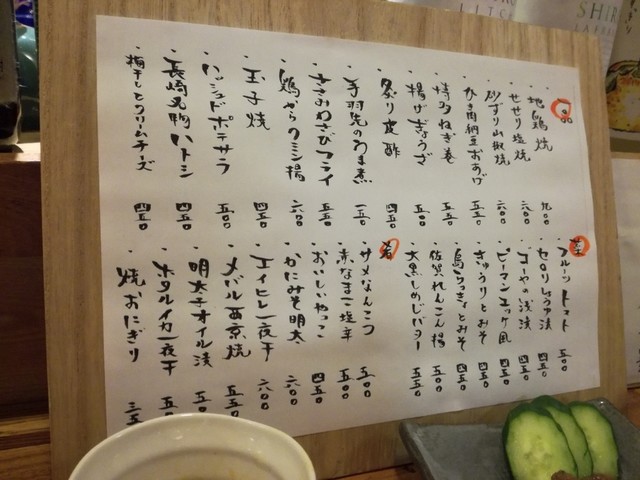 一品
・地鶏焼 九〇〇
・せせり塩焼 六〇〇
・砂ずり山椒焼 六〇〇
・ひき肉納豆おあげ 五五〇
・博多ねぎ巻 五〇〇
・揚げぎょうざ 五〇〇
・炙り皮酢 四五〇
・手羽先のうま煮 一五〇
・ささみわさびフライ 五五〇
・鶏からクミン揚 六〇〇
・玉子焼 四五〇
・ハッシュドポテサラ 五〇〇
・長崎名物ハトシ 四五〇
・梅干しとクリームチーズ 四五〇
菜
・フルーツトマト 五〇〇
・セロリしょうゆ漬 四五〇
・ゴーヤの浅漬 四五〇
・ピーマンエッグ風 五〇〇
・きゅうりとみそ 四五〇
・島らっきょとみそ 四五〇
・佐賀れんこん揚 五〇〇
・大黒しめじバター 五五〇
肴
・サメなんこつ 五〇〇
・赤なまこ塩辛 五〇〇
・おいしいやっこ 四五〇
・かにみそ明太 六〇〇
・エイヒレ一夜干 六〇〇
・メバル西京焼 五五〇
・明太子オイル漬 五〇〇
・ホタルイカ一夜干 五〇
・焼おにぎり 三五
SHIR